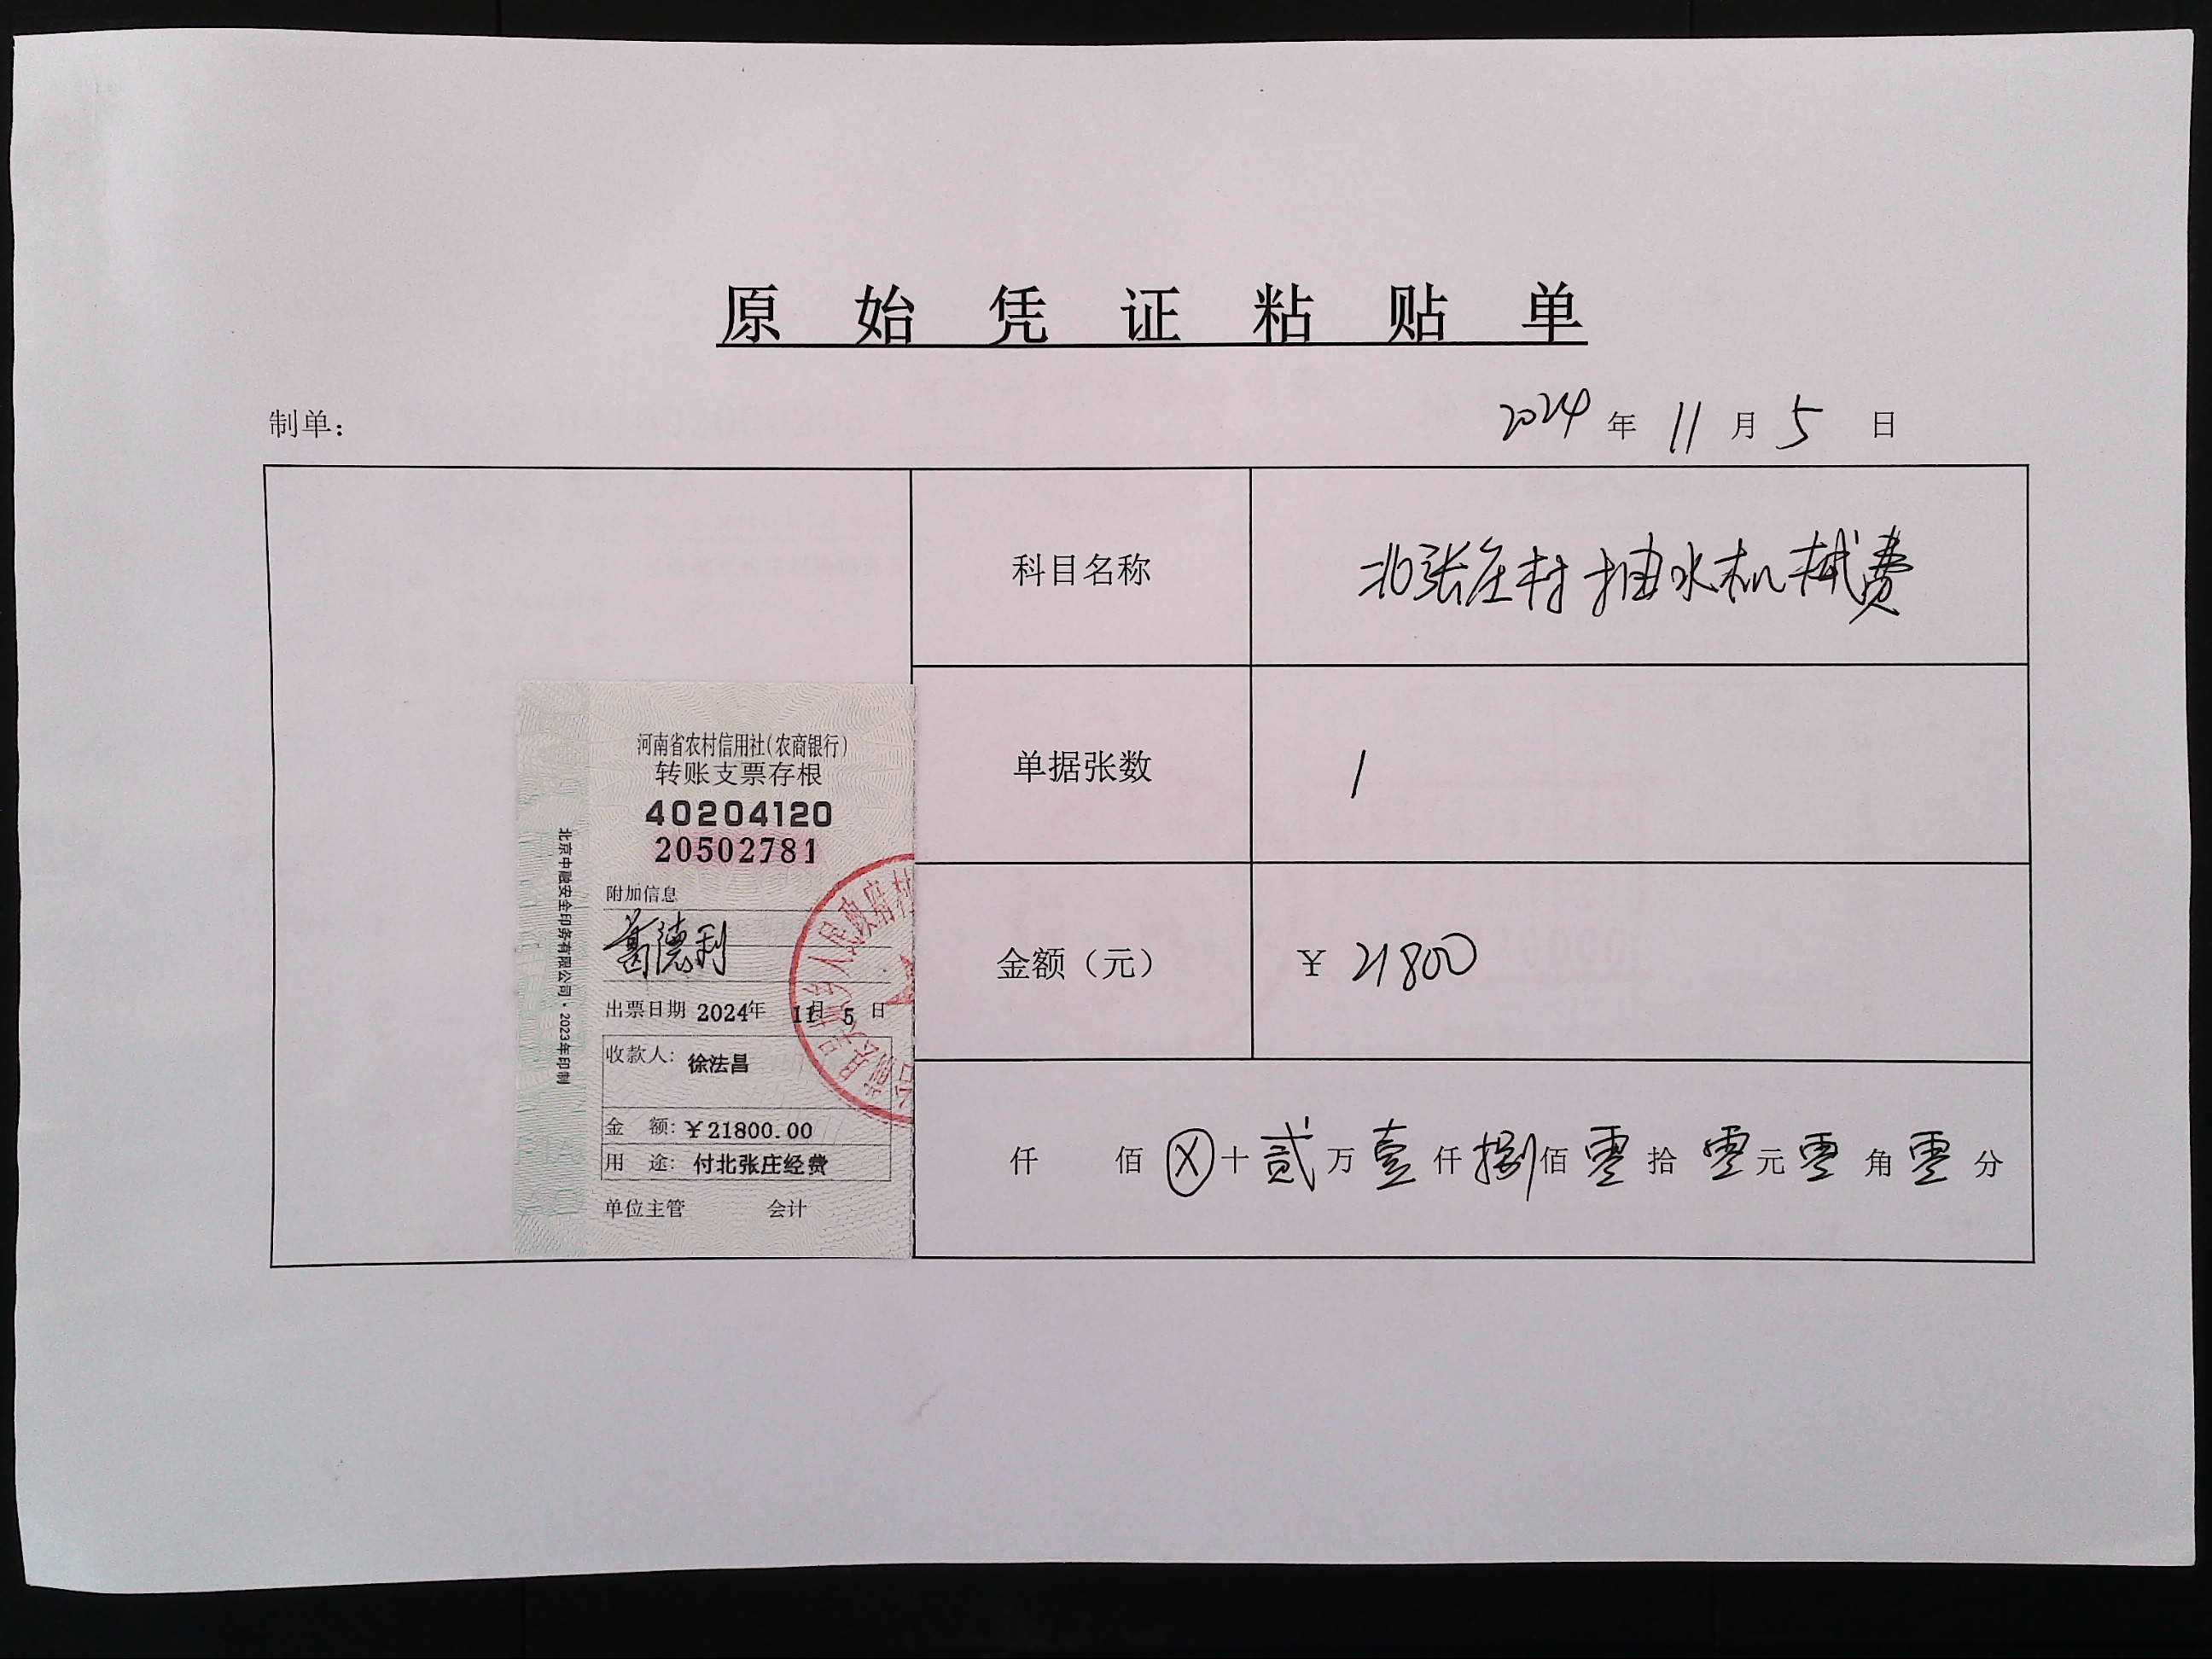 原始凭证粘贴单
制单：
2024年11月5日
河南省农村信用社(农商银行)
转账支票存根
40204120
20502781
附加信息
葛德利
出票日期 2024年 11月 5 日
收款人：徐法昌
金 额：￥21800.00
用 途：付北张庄经费
单位主管 会计
北京中融安全印务有限公司·2023年印制
人民政府村
科目名称 北张庄村抽水机械费
单据张数 1
金额（元） ￥21800
仟 佰ⓧ十贰万壹仟捌佰零拾零元零角零分